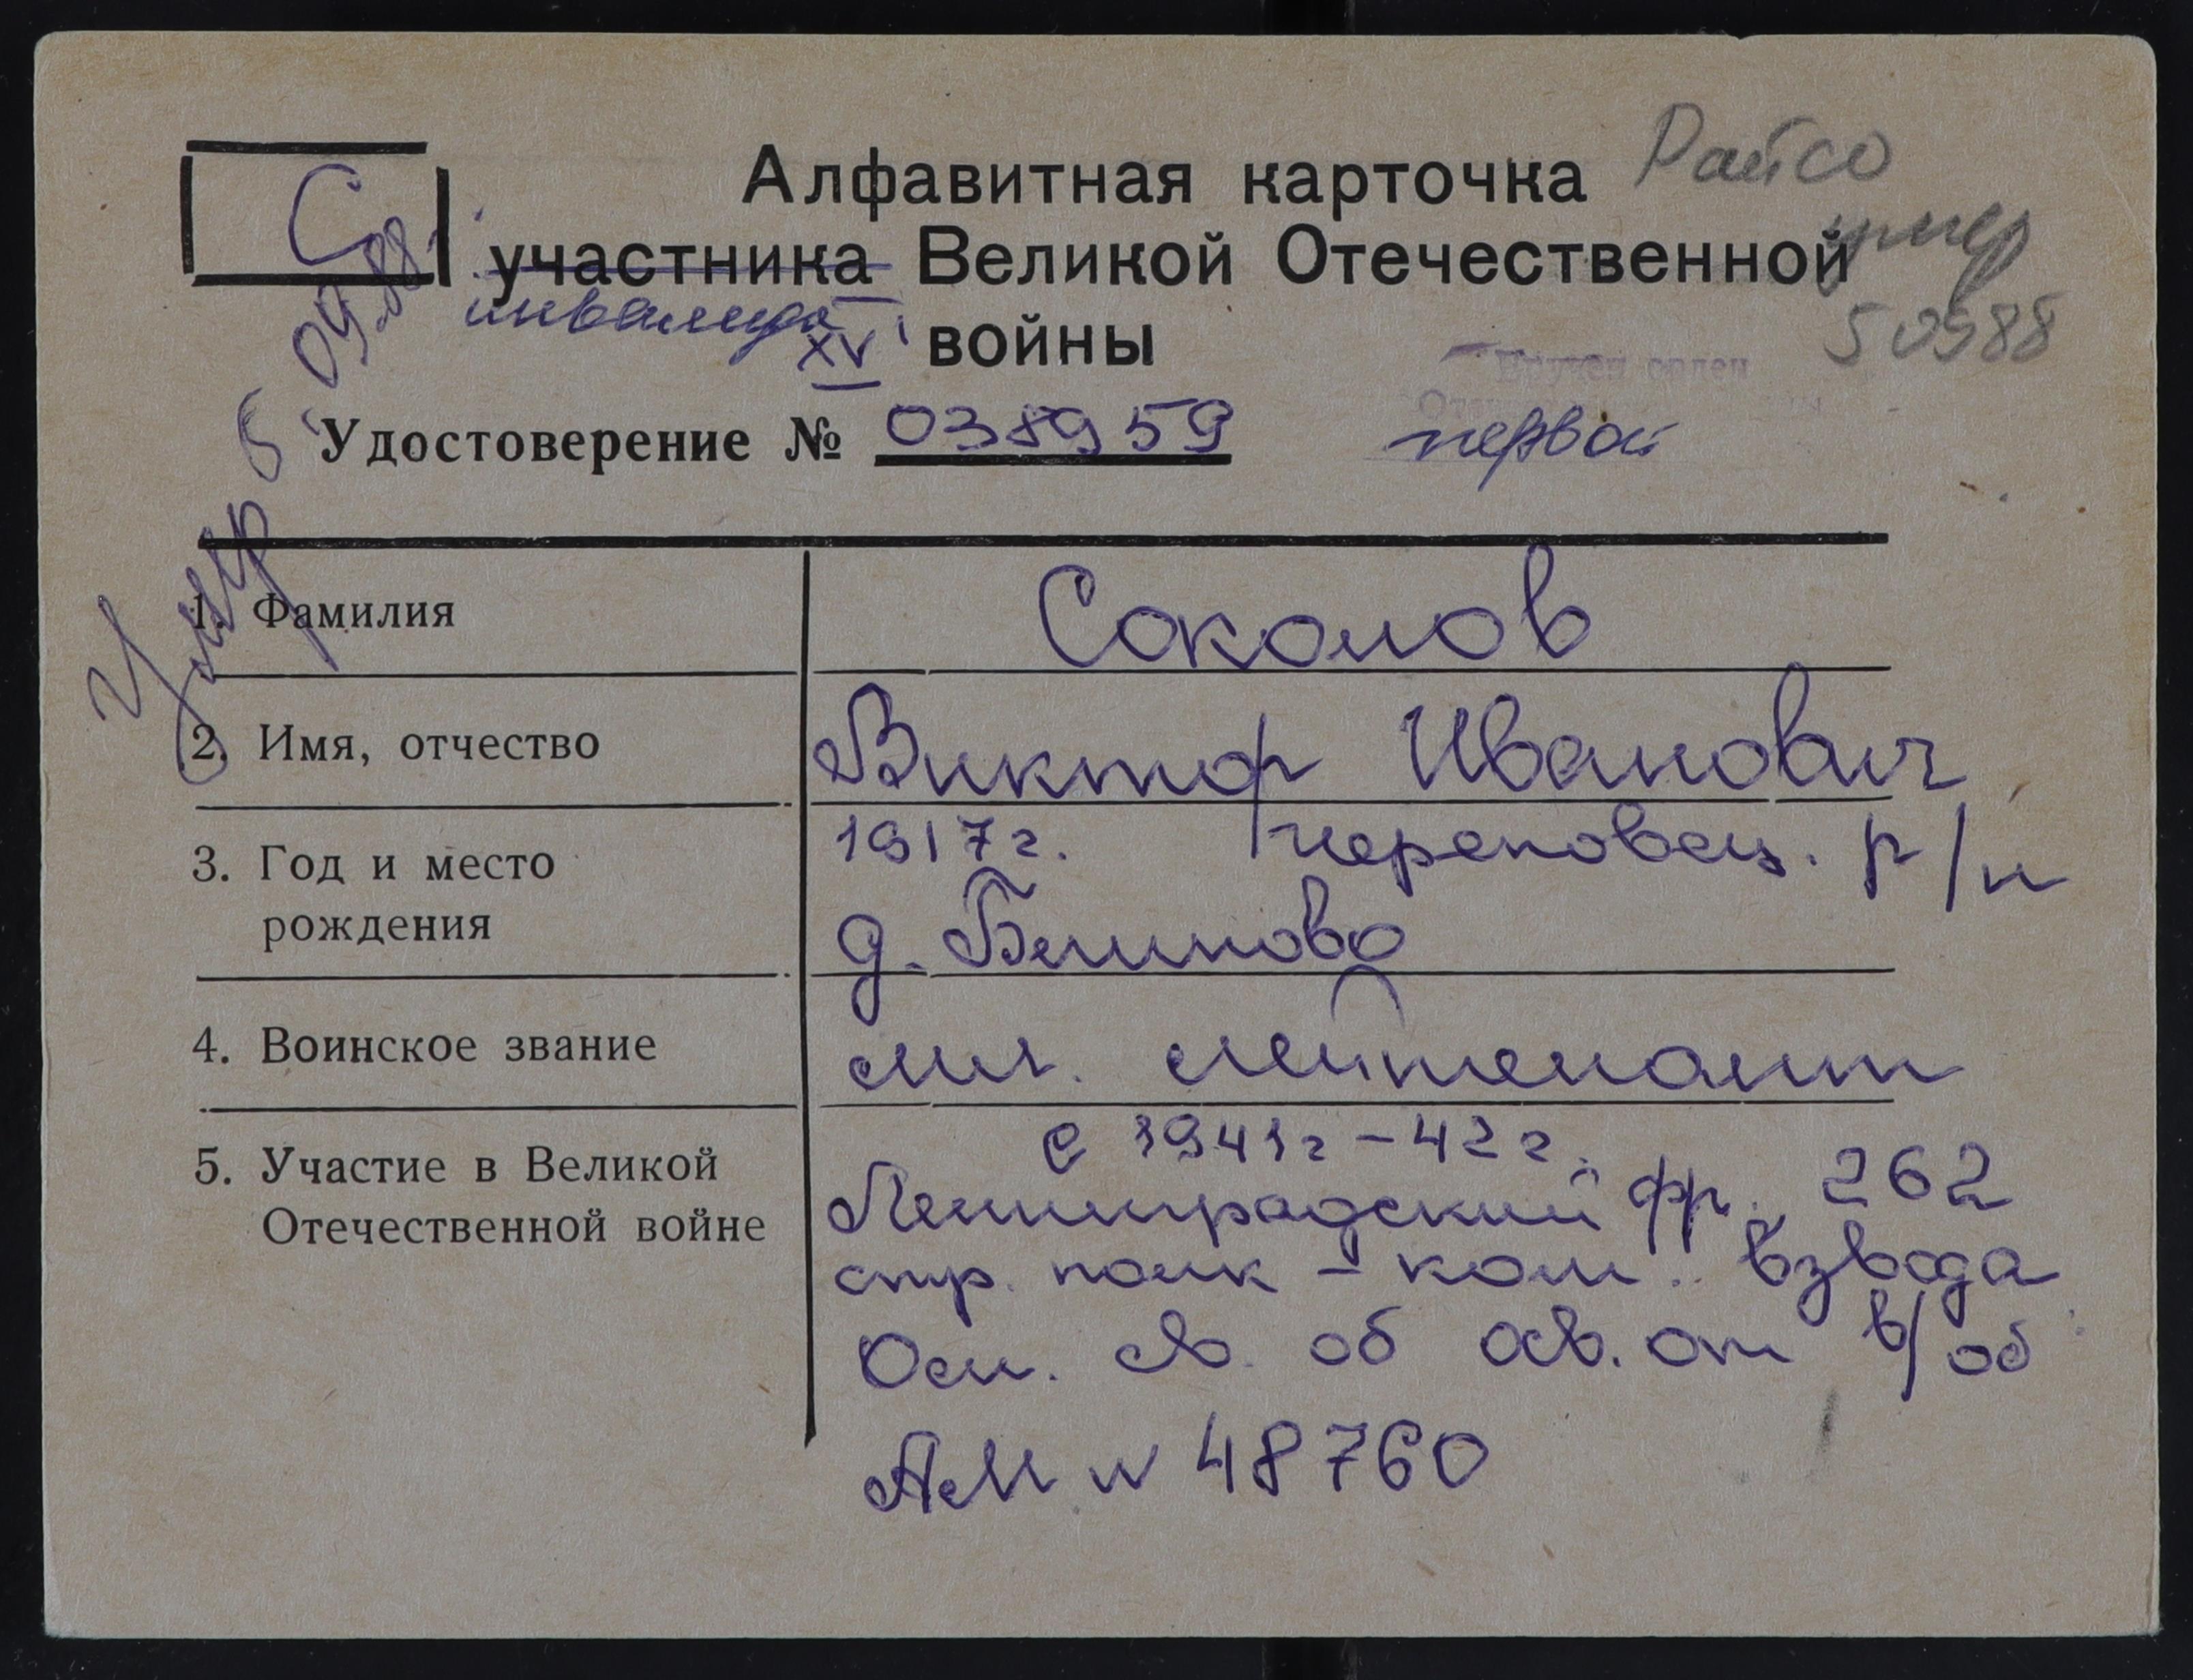 С
Алфавитная карточка
Райсо
участника Великой Отечественной
умер
инвалида
войны
50988
XV
Вручен орден
Удостоверение № 038959
первой
Умер 5.09.88.
1. Фамилия Соколов
2. Имя, отчество Виктор Иванович
3. Год и место 1917г. Череповец. р/н
рождения д.
4. Воинское звание мл. лейтенант
5. Участие в Великой с 1941г – 42г.
Отечественной войне Ленинградский фр. 262
стр. полк – ком. взвода
Осн. св. об осв. от в/об
АМ № 48760